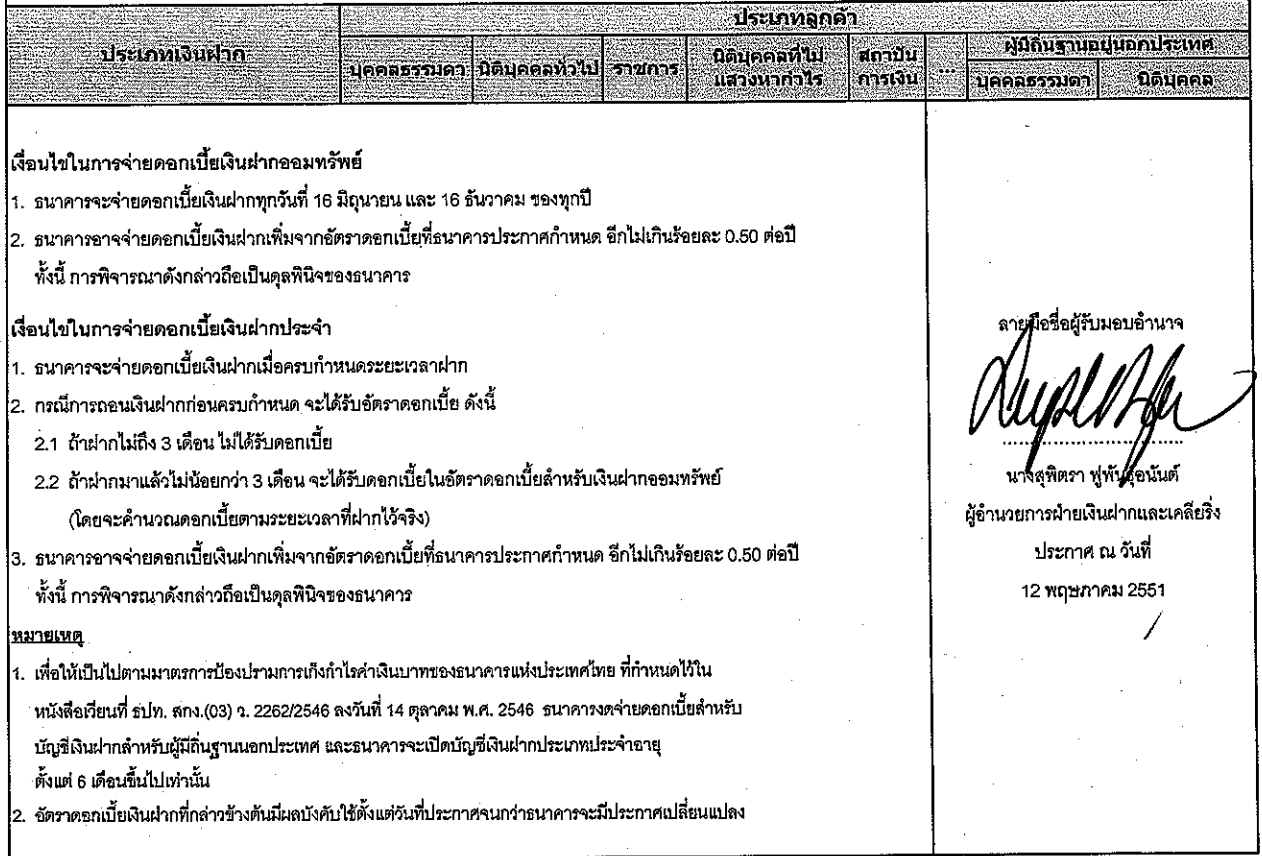 ประเภทเงินฝาก
ประเภทลูกค้า
บุคคลธรรมดา
นิติบุคคลทั่วไป
ราชการ
นิติบุคคลที่ไม่
แสวงหากำไร
สถาบัน
การเงิน
...
ผู้มีถิ่นฐานอยู่นอกประเทศ
บุคคลธรรมดา
นิติบุคคล
เงื่อนไขในการจ่ายดอกเบี้ยเงินฝากออมทรัพย์
1. ธนาคารจะจ่ายดอกเบี้ยเงินฝากทุกวันที่ 16 มิถุนายน และ 16 ธันวาคม ของทุกปี
2. ธนาคารอาจจ่ายดอกเบี้ยเงินฝากเพิ่มจากอัตราดอกเบี้ยที่ธนาคารประกาศกำหนด อีกไม่เกินร้อยละ 0.50 ต่อปี
ทั้งนี้ การพิจารณาดังกล่าวถือเป็นดุลพินิจของธนาคาร
เงื่อนไขในการจ่ายดอกเบี้ยเงินฝากประจำ
1. ธนาคารจะจ่ายดอกเบี้ยเงินฝากเมื่อครบกำหนดระยะเวลาฝาก
2. กรณีการถอนเงินฝากก่อนครบกำหนด จะได้รับอัตราดอกเบี้ย ดังนี้
2.1 ถ้าฝากไม่ถึง 3 เดือน ไม่ได้รับดอกเบี้ย
2.2 ถ้าฝากมาแล้วไม่น้อยกว่า 3 เดือน จะได้รับดอกเบี้ยในอัตราดอกเบี้ยสำหรับเงินฝากออมทรัพย์
(โดยจะคำนวณดอกเบี้ยตามระยะเวลาที่ฝากไว้จริง)
3. ธนาคารอาจจ่ายดอกเบี้ยเงินฝากเพิ่มจากอัตราดอกเบี้ยที่ธนาคารประกาศกำหนด อีกไม่เกินร้อยละ 0.50 ต่อปี
ทั้งนี้ การพิจารณาดังกล่าวถือเป็นดุลพินิจของธนาคาร
หมายเหตุ
1. เพื่อให้เป็นไปตามมาตรการป้องปรามการเก็งกำไรค่าเงินบาทของธนาคารแห่งประเทศไทย ที่กำหนดไว้ใน
หนังสือเวียนที่ ธปท. สกง.(03) ว. 2262/2546 ลงวันที่ 14 ตุลาคม พ.ศ. 2546 ธนาคารงดจ่ายดอกเบี้ยสำหรับ
บัญชีเงินฝากสำหรับผู้มีถิ่นฐานนอกประเทศ และธนาคารจะเปิดบัญชีเงินฝากประเภทประจำอายุ
ตั้งแต่ 6 เดือนขึ้นไปเท่านั้น
2. อัตราดอกเบี้ยเงินฝากที่กล่าวข้างต้นมีผลบังคับใช้ตั้งแต่วันที่ประกาศจนกว่าธนาคารจะมีประกาศเปลี่ยนแปลง
ลายมือชื่อผู้รับมอบอำนาจ
นางสุพิตรา ฟูพันธุ์อนันต์
ผู้อำนวยการฝ่ายเงินฝากและเคลียริ่ง
ประกาศ ณ วันที่
12 พฤษภาคม 2551